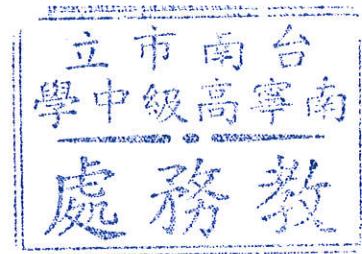 台南市立
南寧高級中學
教務處